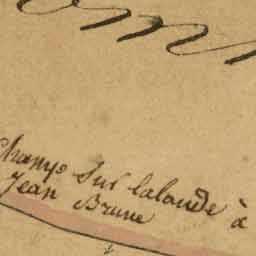 om
Champs Sur lalande à
Jean Brune